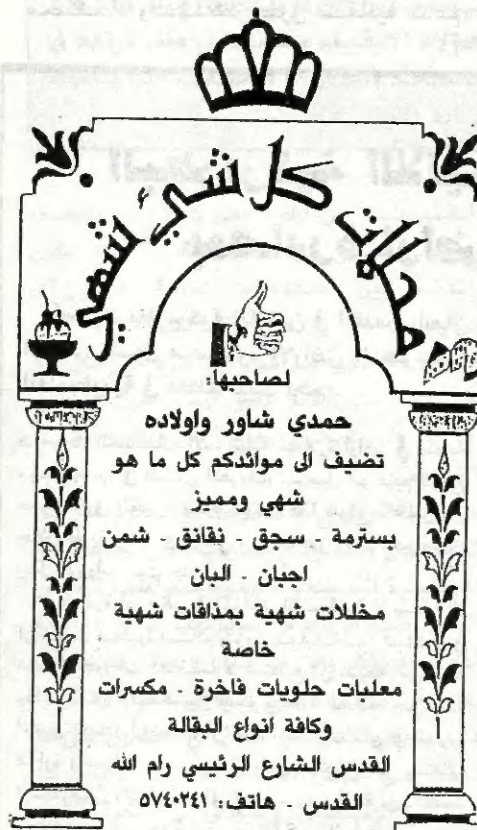 محلات كل شيء شهي
لصاحبها:
حمدي شاور واولاده
تضيف الى موائدكم كل ما هو
شهي ومميز
بسترمة - سجق - نقانق - شمن
اجبان - البان
مخللات شهية بمذاقات شهية
خاصة
معلبات حلويات فاخرة - مكسرات
وكافة انواع البقالة
القدس الشارع الرئيسي رام الله
القدس - هاتف: ٥٧٤٠٢٤١